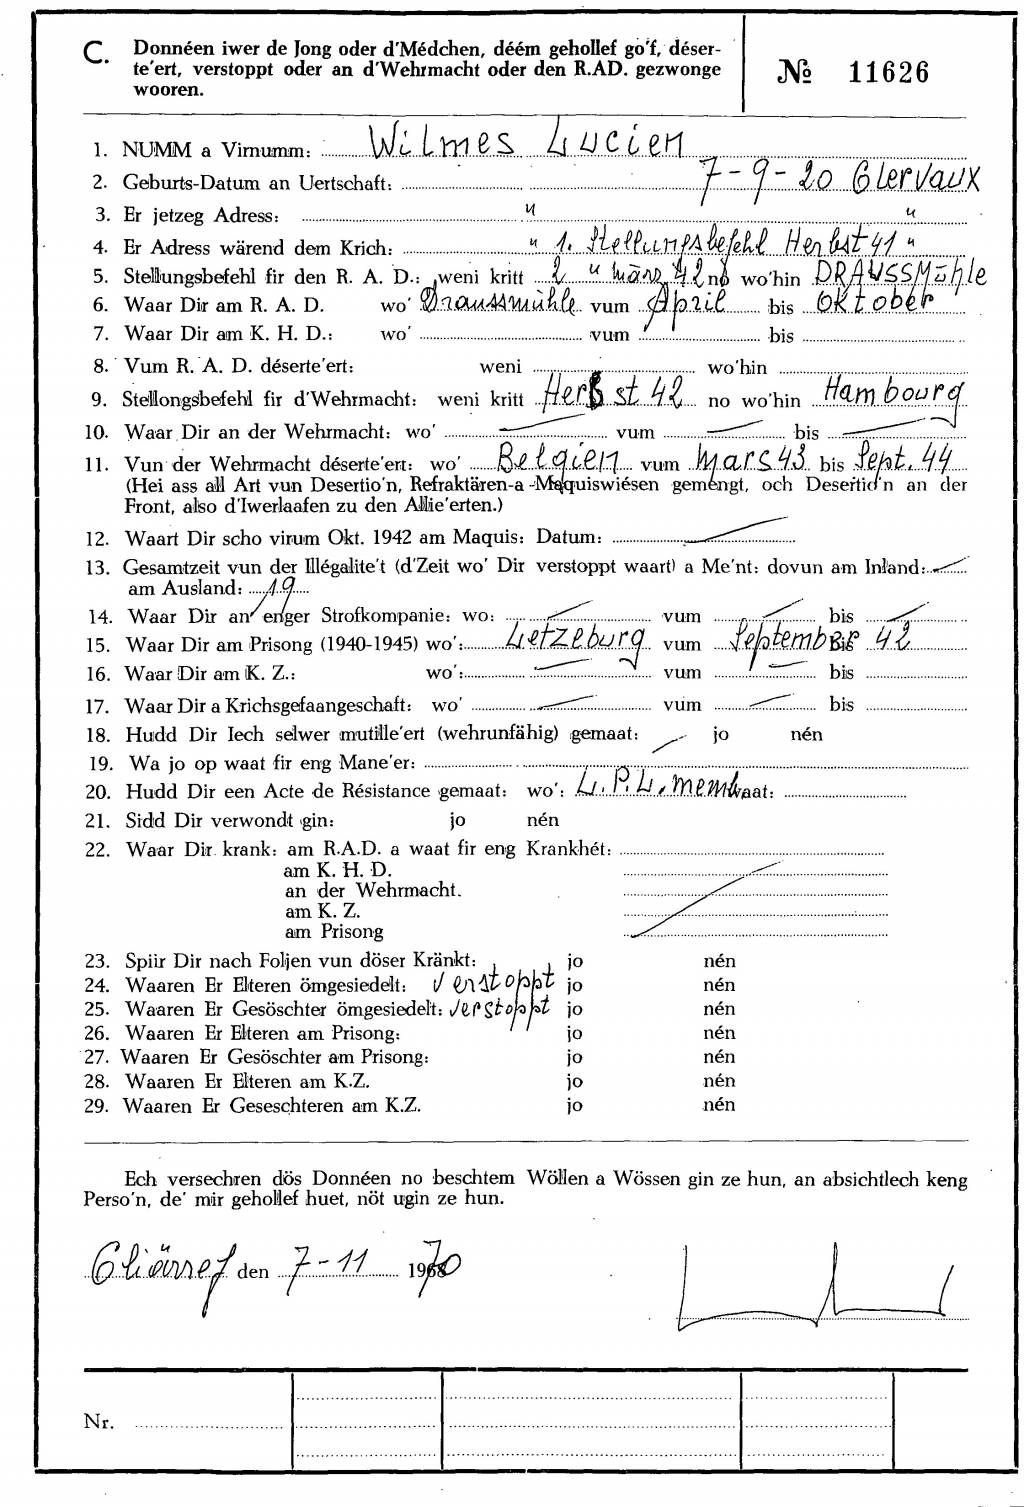 C. Donnéen iwer de Jong oder d'Médchen, déém gehollef go'f, déser-
te'ert, verstoppt oder an d'Wehrmacht oder den R.AD. gezwonge
wooren.
№ 11626
1. NUMM a Virnumm: Wilmes Lucien
2. Geburts-Datum an Uertschaft: 7-9-20 Clervaux
3. Er jetzeg Adress: " "
4. Er Adress wärend dem Krich: " 1. Stellungsbefehl Herbst 41 "
5. Stellungsbefehl fir den R. A. D.: weni kritt 2 " März 42 no wo'hin DRAUSSMühle
6. Waar Dir am R. A. D. wo' Draussmühle vum April bis Oktober
7. Waar Dir am K. H. D.: wo' vum bis
8. Vum R. A. D. déserte'ert: weni wo'hin
9. Stellongsbefehl fir d'Wehrmacht: weni kritt Herbst 42 no wo'hin Hambourg
10. Waar Dir an der Wehrmacht: wo' — vum — bis —
11. Vun der Wehrmacht déserte'ert: wo' Belgien vum Mars 43 bis Sept. 44
(Hei ass all Art vun Desertio'n, Refraktären-a -Maquiswiésen gemengt, och Desertio'n an der
Front, also d'Iwerlaafen zu den Allie'erten.)
12. Waart Dir scho virum Okt. 1942 am Maquis: Datum: —
13. Gesamtzeit vun der Illégalite't (d'Zeit wo' Dir verstoppt waart) a Me'nt: dovun am Inland: —
am Ausland: 19
14. Waar Dir an enger Strofkompanie: wo: — vum — bis —
15. Waar Dir am Prisong (1940-1945) wo': Letzeburg vum September bis 42
16. Waar Dir am K. Z.: wo': — vum — bis
17. Waar Dir a Krichsgefaangeschaft: wo' — vum — bis
18. Hudd Dir Iech selwer mutille'ert (wehrunfähig) gemaat: — jo nén
19. Wa jo op waat fir eng Mane'er:
20. Hudd Dir een Acte de Résistance gemaat: wo': L.P.L. memb. waat:
21. Sidd Dir verwondt gin: jo nén
22. Waar Dir krank: am R.A.D. a waat fir eng Krankhét:
am K. H. D.
an der Wehrmacht.
am K. Z.
am Prisong
23. Spiir Dir nach Foljen vun döser Kränkt: jo nén
24. Waaren Er Elteren ömgesiedelt: Verstoppt jo nén
25. Waaren Er Gesöschter ömgesiedelt: Verstoppt jo nén
26. Waaren Er Elteren am Prisong: jo nén
27. Waaren Er Gesöschter am Prisong: jo nén
28. Waaren Er Elteren am K.Z. jo nén
29. Waaren Er Geseschteren am K.Z. jo nén
Ech versechren dös Donnéen no beschtem Wöllen a Wössen gin ze hun, an absichtlech keng
Perso'n, de' mir gehollef huet, nöt ugin ze hun.
Cliärref den 7-11 1970
Nr.